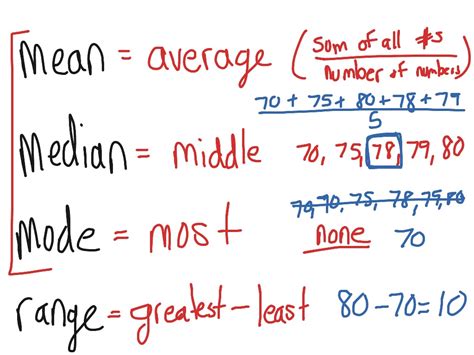 Mean = average (Sum of all #s / Number of numbers)
70 + 75 + 80 + 78 + 79
5
Median = middle 70, 75, 78, 79, 80
70, 70, 75, 78, 79, 80
Mode = most none 70
range = greatest - least 80 - 70 = 10